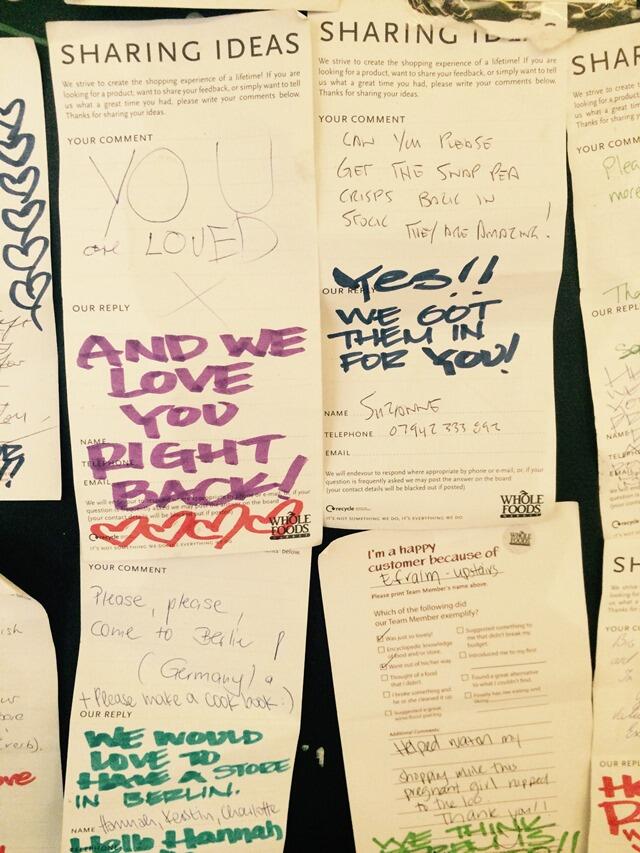 SHARING IDEAS
We strive to create the shopping experience of a lifetime! If you are
looking for a product, want to share your feedback, or simply want to tell
us what a great time you had, please write your comments below.
Thanks for sharing your ideas.
YOUR COMMENT
YOU
are LOVED
X
OUR REPLY
AND WE
LOVE
YOU
RIGHT
BACK!
NAME
TELEPHONE
EMAIL
recycle
IT'S NOT SOMETHING WE DO, IT'S EVERYTHING WE DO
WHOLE
FOODS
MARKET
SHARING IDEAS
We strive to create the shopping experience of a lifetime! If you are
looking for a product, want to share your feedback, or simply want to tell
us what a great time you had, please write your comments below.
Thanks for sharing your ideas.
YOUR COMMENT
CAN YOU PLEASE
GET THE SNAP PEA
CRISPS BACK IN
STOCK THEY ARE AMAZING!
OUR REPLY
Yes!!
WE GOT
THEM IN
FOR YOU!
NAME SUZANNE
TELEPHONE 07942 333 892
EMAIL
We will endeavour to respond where appropriate by phone or e-mail, or, if your
question is frequently asked we may post the answer on the board
(your contact details will be blacked out if posted).
recycle
IT'S NOT SOMETHING WE DO, IT'S EVERYTHING WE DO
WHOLE
FOODS
MARKET
YOUR COMMENT
Please, please,
come to Berlin!
(Germany)
+ Please make a cook book :)
OUR REPLY
WE WOULD
LOVE TO
HAVE A STORE
IN BERLIN.
NAME Hannah, Kerstin, Charlotte
Hello Hannah
I'm a happy
customer because of
Efraim - upstairs
Please print Team Member's name above.
Which of the following did
our Team Member exemplify?
Was just so lovely!
Encyclopedic knowledge
of food and/or store.
Went out of his/her way
Thought of a food
that I didn't.
I broke something and
he or she cleaned it up.
Suggested a great
wine/food pairing
Suggested something to
me that didn't break my
budget.
Introduced me to my first
Found a great alternative
to what I couldn't find.
Additional Comments:
Helped watch my
shopping while this
pregnant girl nipped
to the loo
Thank you!!
WE THINK
SHAR
YOUR COMM
Plea
more
OUR REPL
NAME
EMAIL
SH
YOUR C
OUR REPL